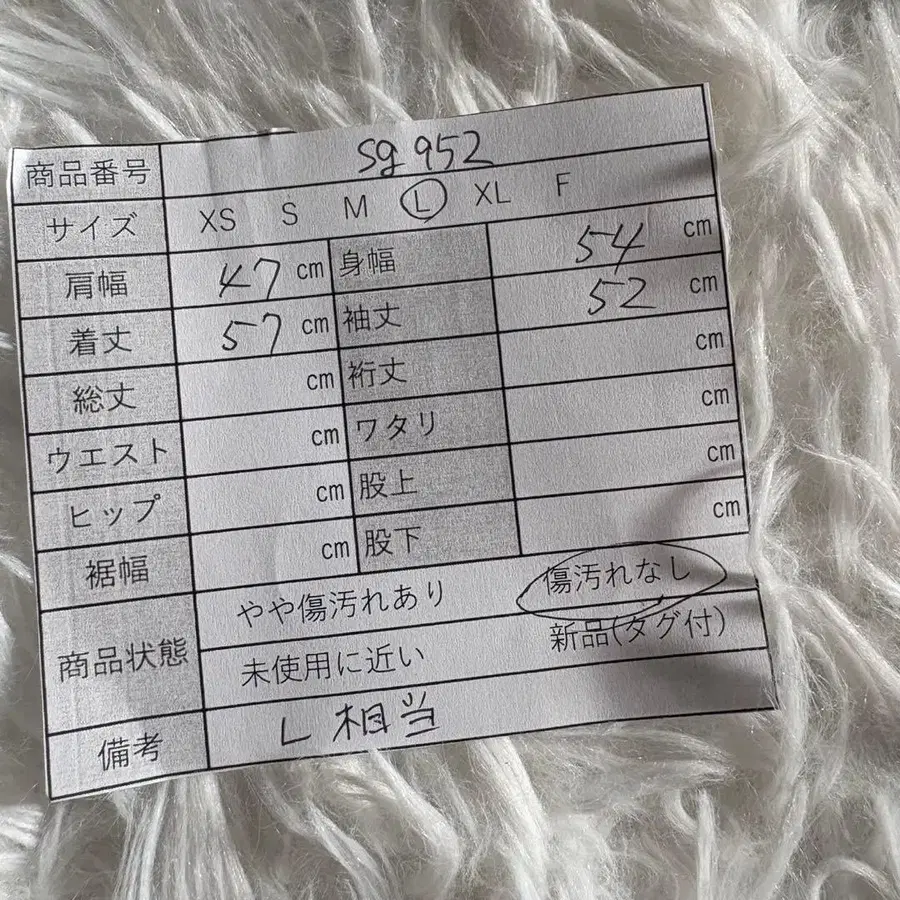 商品番号 sg 952
サイズ XS S M L XL F
肩幅 47 cm 身幅 54 cm
着丈 57 cm 袖丈 52 cm
総丈 cm 裄丈 cm
ウエスト cm ワタリ cm
ヒップ cm 股上 cm
裾幅 cm 股下 cm
商品状態 やや傷汚れあり 傷汚れなし
未使用に近い 新品(タグ付)
備考 L 相当